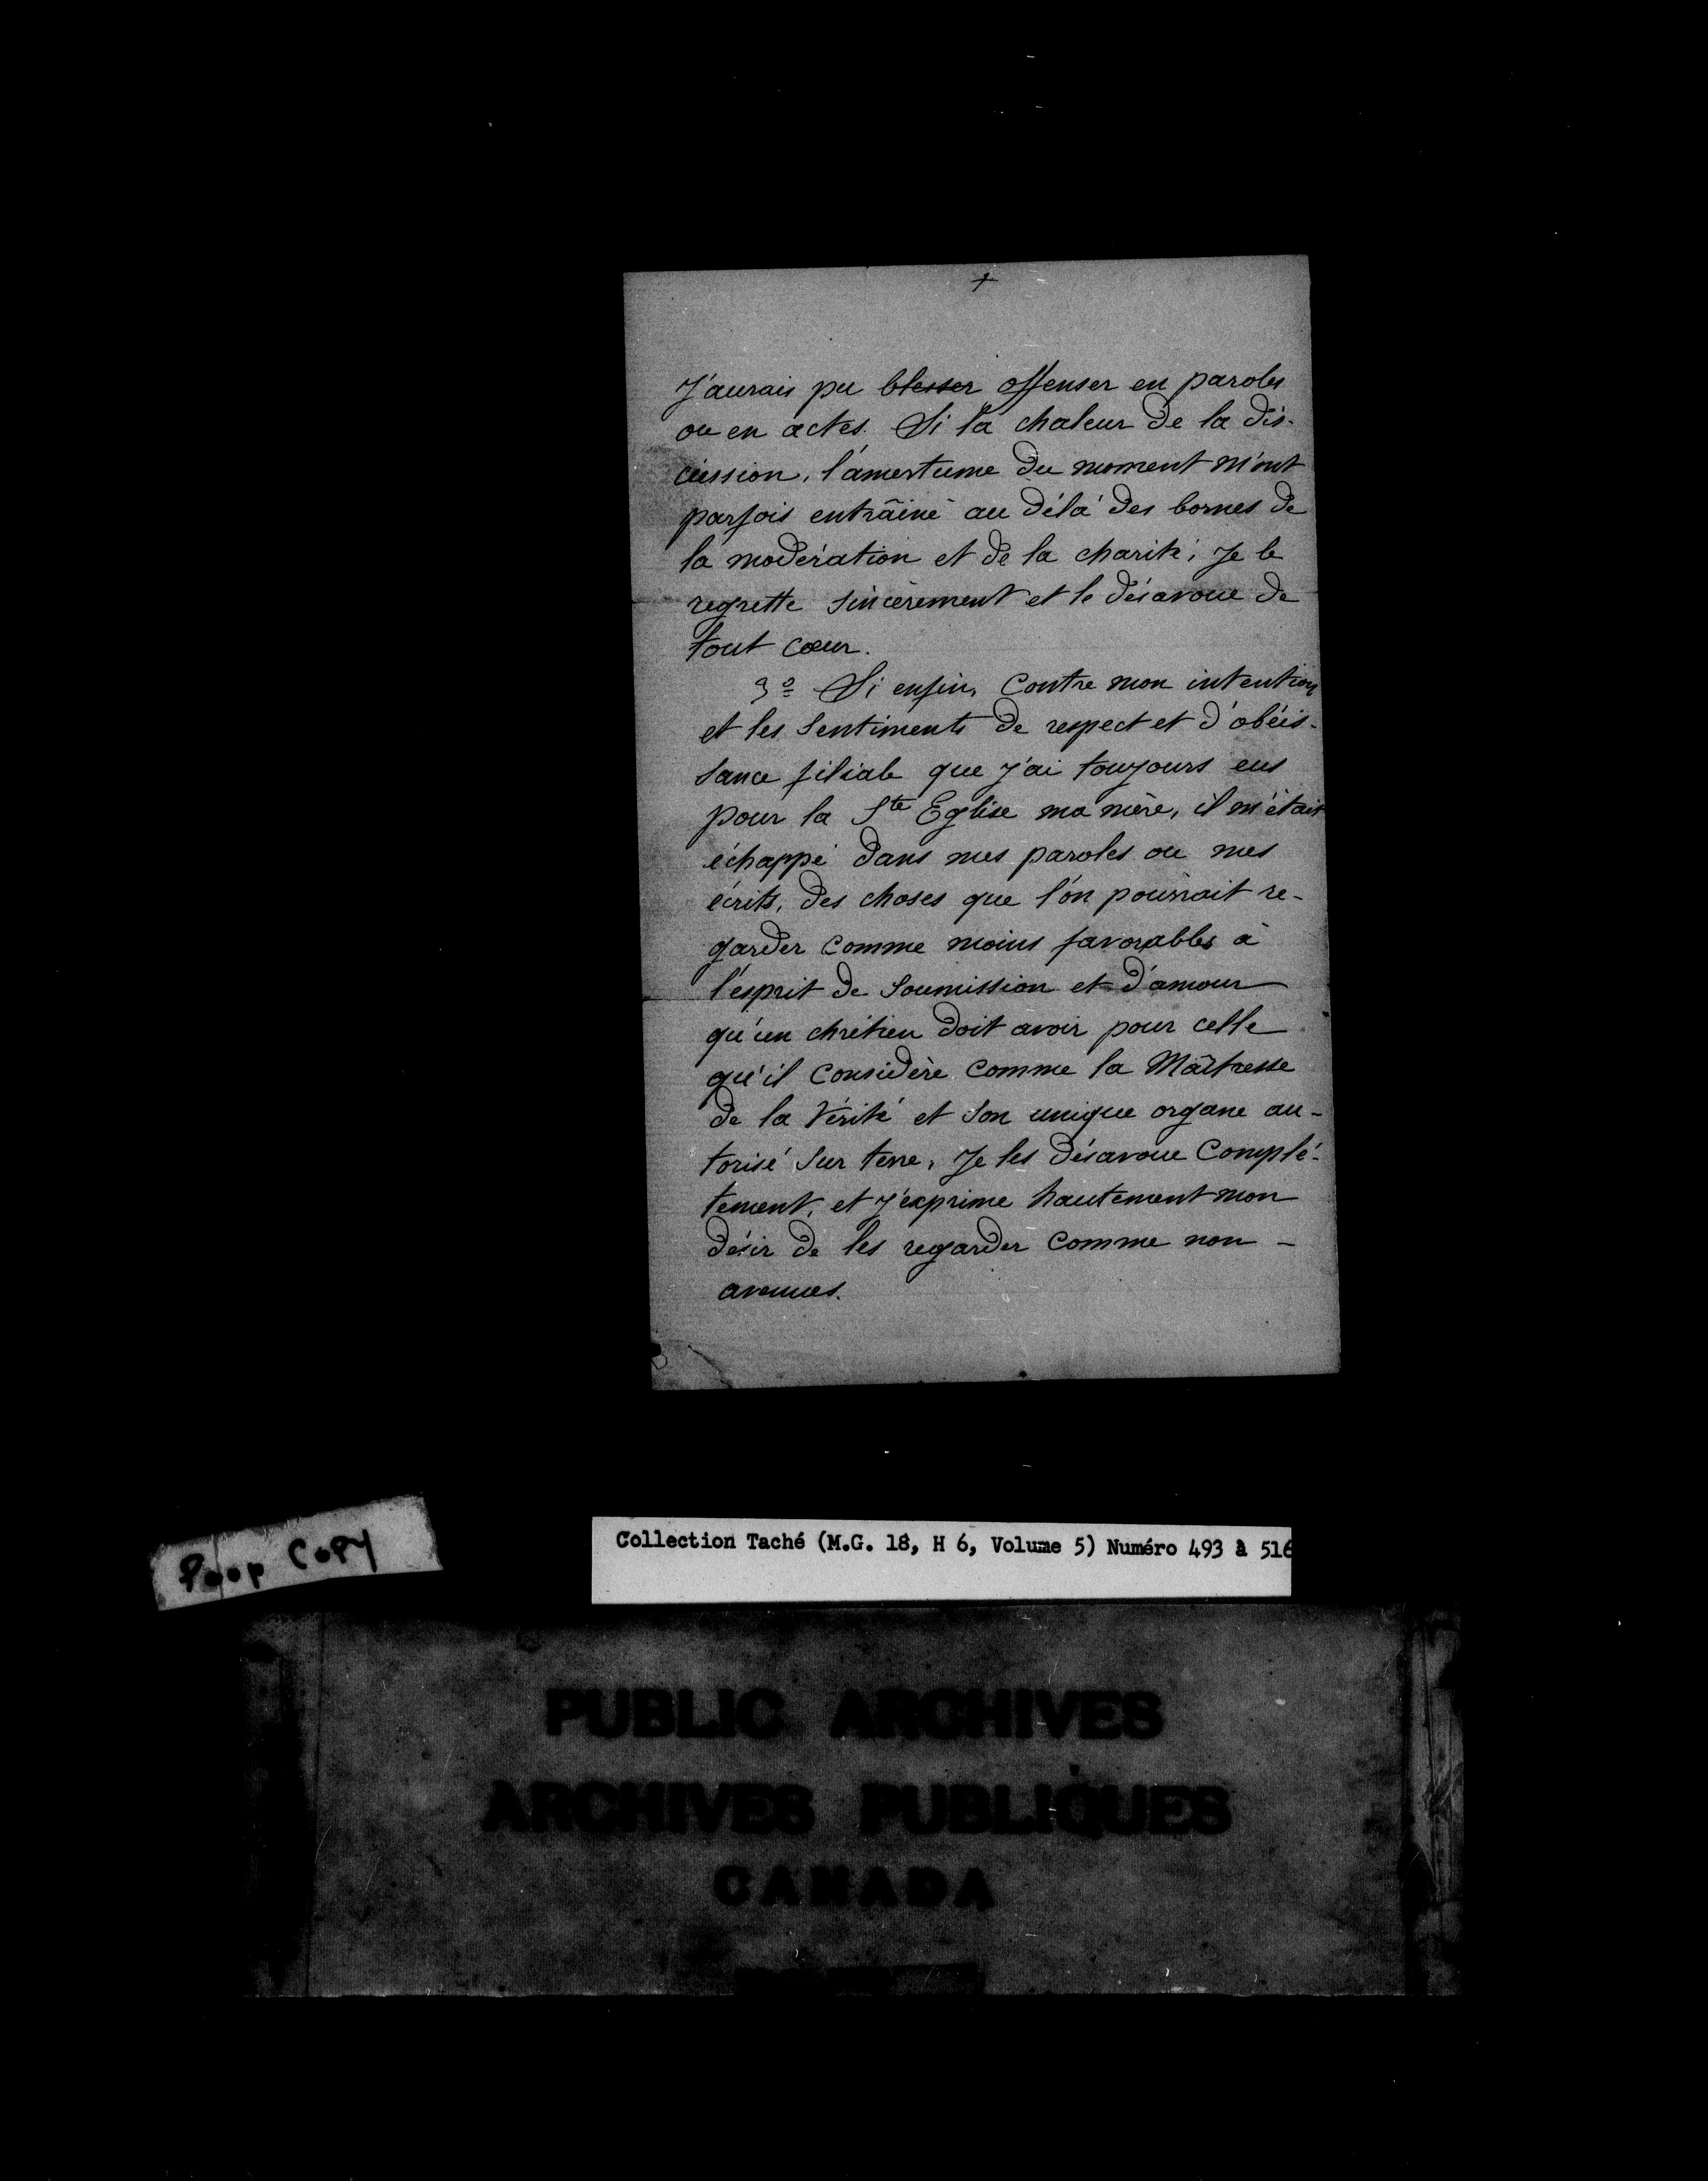 +
J'aurais pu blesser offenser en paroles
ou en actes. Si la chaleur de la dis-
cussion, l'amertume du moment m'ont
parfois entraîné au délà des bornes de
la modération et de la charité, Je le
regrette sincèrement et le désavoue de
tout cœur.
3º Si enfin, Contre mon intention
et les sentiments de respect et d'obéis-
sance filiale que j'ai toujours eus
pour la Ste Eglise ma mère, il m'était
échappé dans mes paroles ou mes
écrits, des choses que l'on pourrait re-
garder comme moins favorables à
l'esprit de soumission et d'amour
qu'un chrétien doit avoir pour celle
qu'il considère comme la Maîtresse
de la Vérité et son unique organe au-
torisé sur terre, Je les désavoue Complé-
tement, et j'exprime hautement mon
désir de les regarder comme non -
avenues.
Poor Copy
Collection Taché (M.G. 18, H 6, Volume 5) Numéro 493 à 516
PUBLIC ARCHIVES
ARCHIVES PUBLIQUES
CANADA